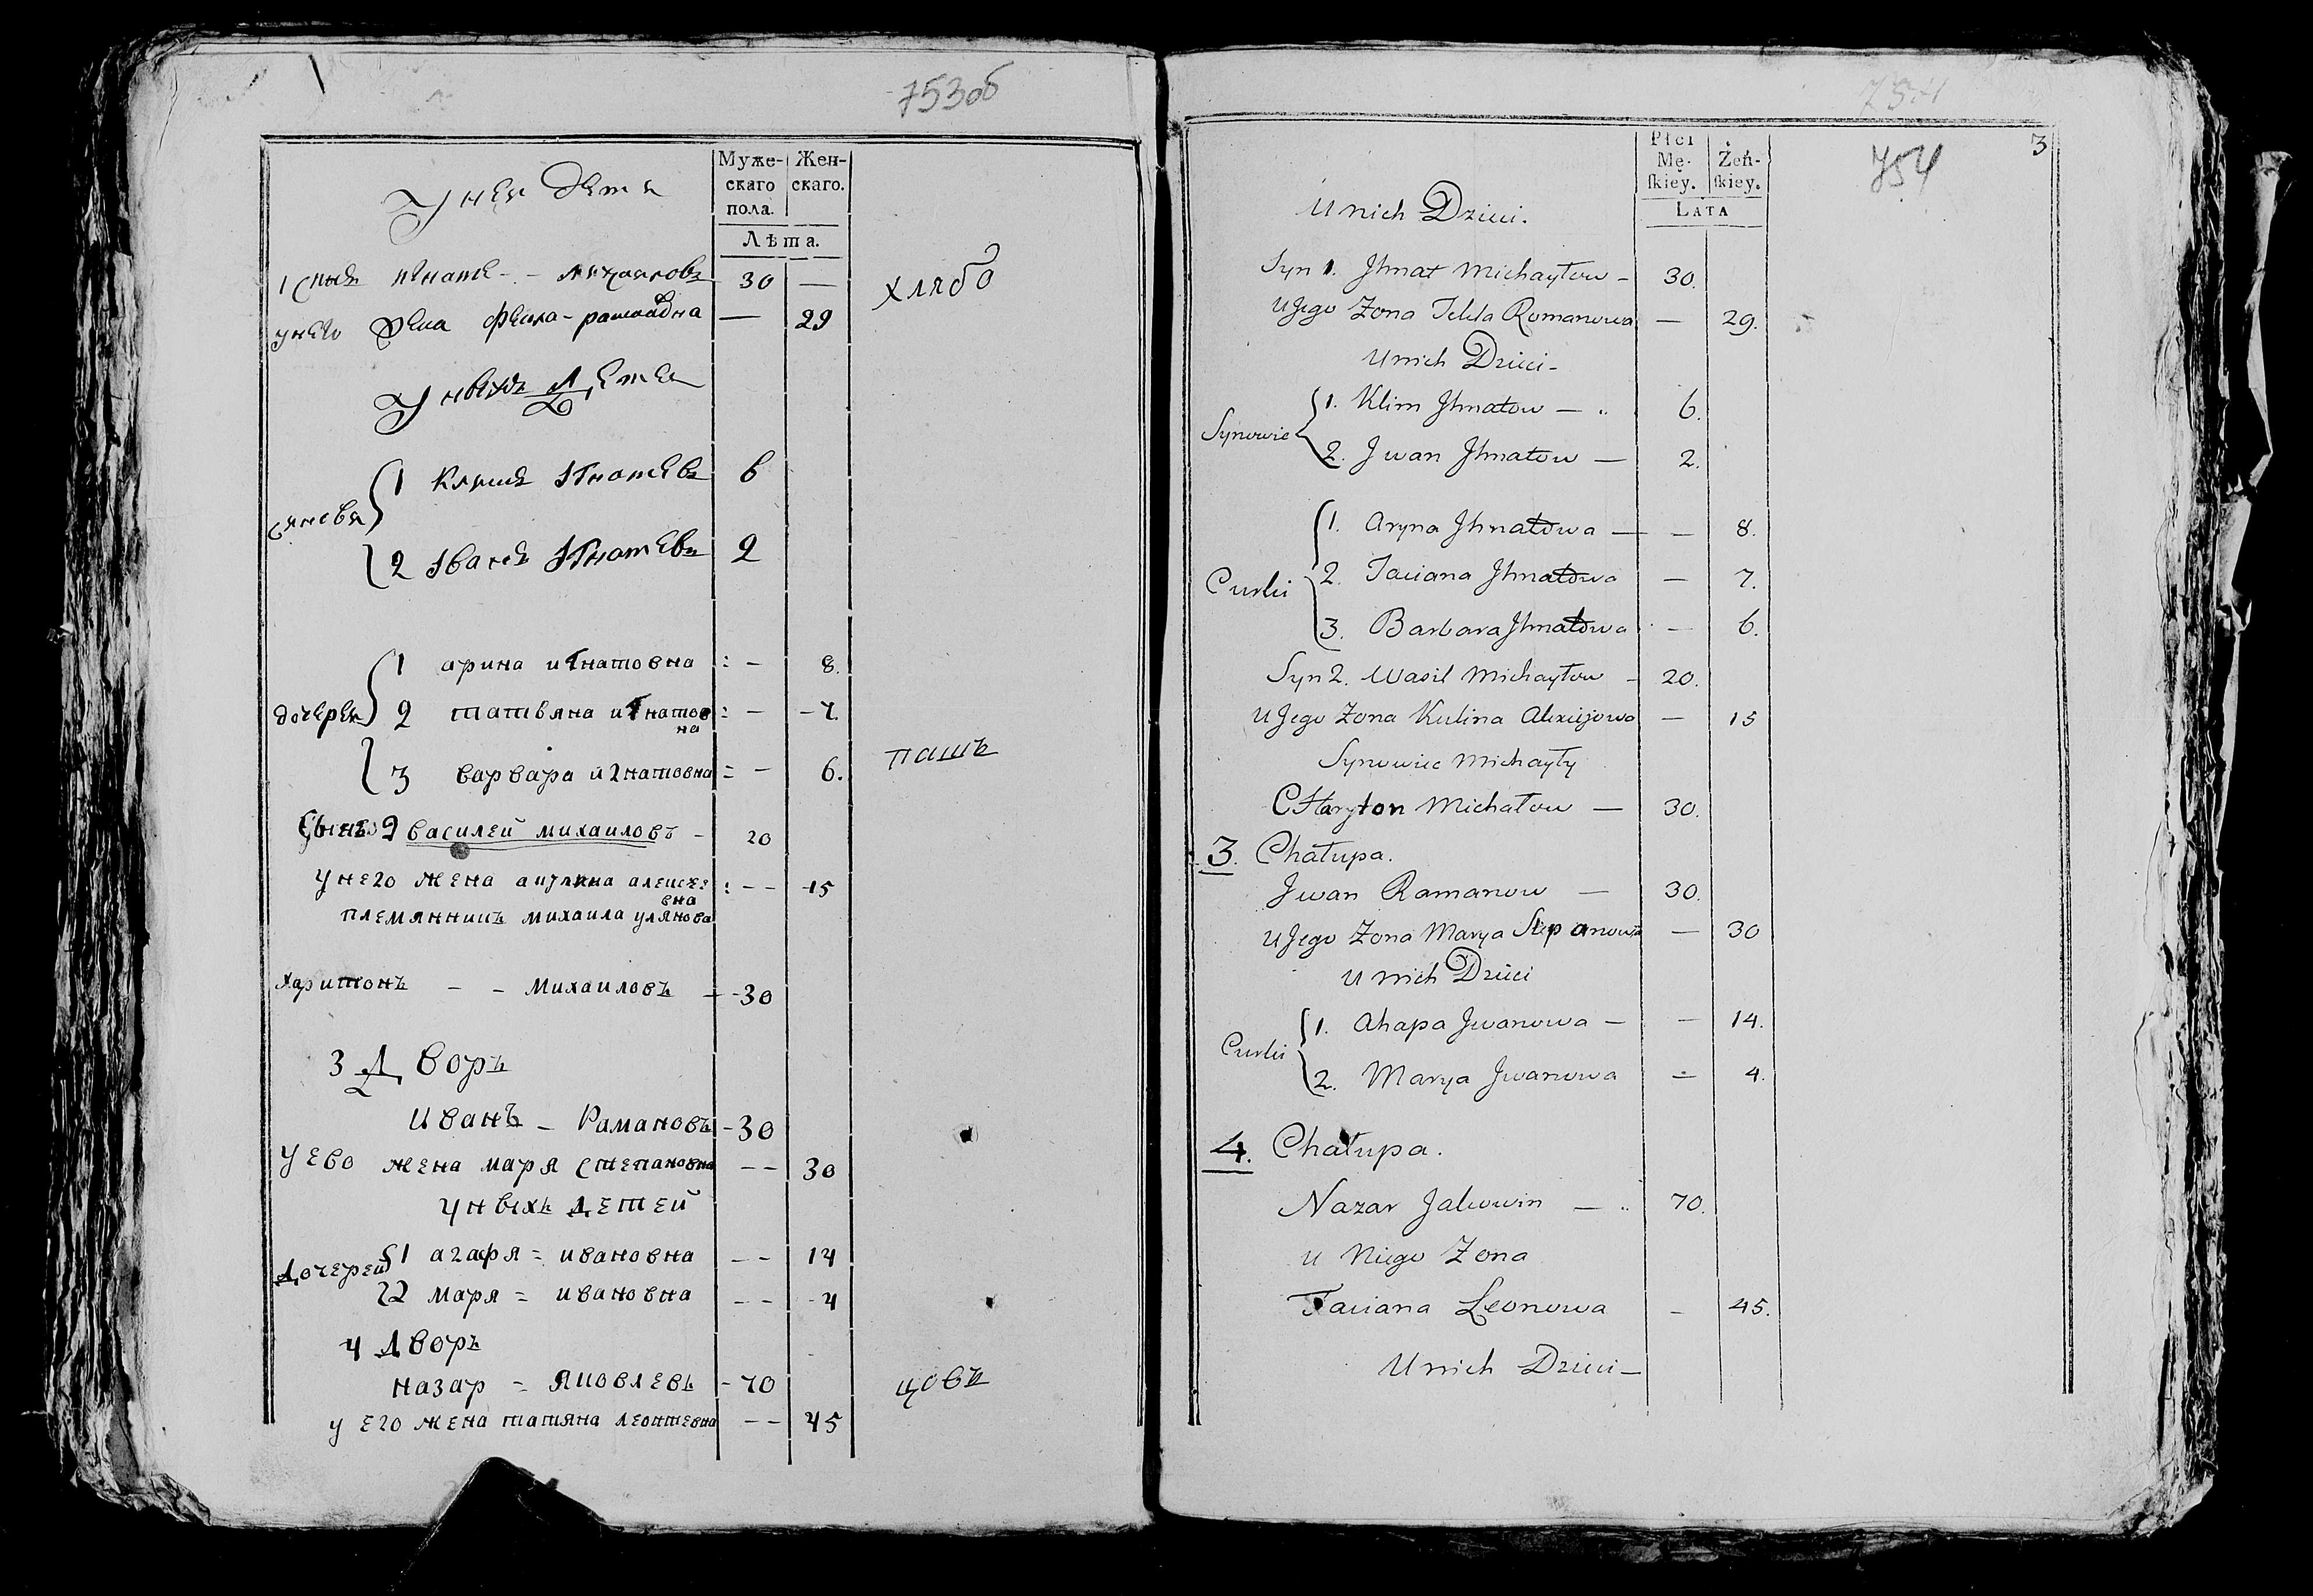 753об
Муже- Жен-
скаго скаго.
пола.
Лѣта.
30 —
хлѣбо
унего жена — 29
1 6
2 2
1 арина игнатовна : — 8.
дочереи 2 татвяна игнатов : — – 7.
на
3 варвара игнатовна = — 6.
пашъ
Сынъ 2 василеи михаиловъ – 20
унего жена акулина алексее : – – 15
вна
племянникъ михаила улянова
харитонъ – – михаиловъ – 30
3 Дворъ
иванъ – Рамановъ – 30
у ево жена маря степановна – – 30
унвіхъ детей
Дочерей 1 агафя = ивановна – – 14
2 маря = ивановна – – 4
4 Дворъ
назар = яковлевъ – 70
цовъ
у его жена татяна леонтевна – – 45
754
3
754
Płci
Mę- Żeń-
ſkiey. ſkiey.
LATA
U nich Dzieci.
Syn 1. Jhnat Michayłow – 30.
U Jego Zona Tekla Romanowa — 29.
U nich Dzieci –
Synowie 1. Klim Jhnatow — „ 6.
2. Jwan Jhnatow — 2.
1. Aryna Jhnatowa — — 8.
Curki 2. Taciana Jhnatowa — 7.
3. Barbara Jhnatowa — 6.
Syn 2. Wasil Michayłow – 20.
U Jego Zona Kulina Alexiejowa — 15
Synowiec Michayły
CHaryton Michałow — 30.
3. Chałupa.
Jwan Ramanow — 30.
U Jego Zona Marya Stepanowa — 30
U nich Dzieci
1. Ahapa Jwanowa — — 14.
Curki
2. Marya Jwanowa — 4.
4. Chałupa.
Nazar Jakowin — „ 70.
U Niego Zona
Taciana Leonowa – 45.
U nich Dzieci –